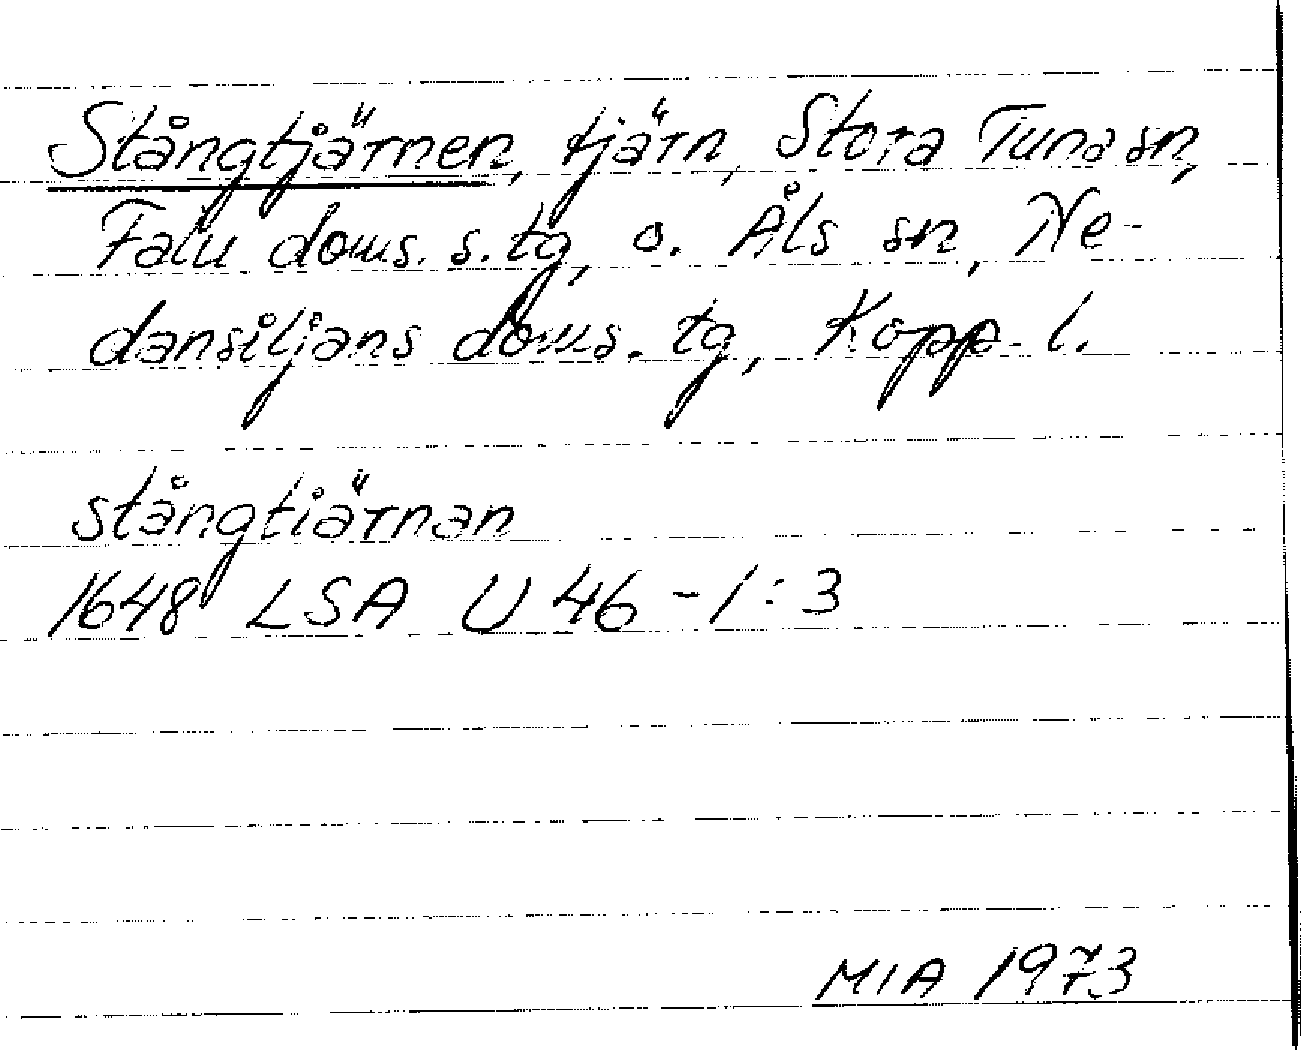 Stångtjärnen, tjärn, Stora Tuna sn,
Falu doms. s. tg, o. Åls sn, Ne-
dansiljans doms. tg, Kopp. l.
stångtiärnan
1648 LSA U 46-1:3
MIA 1973